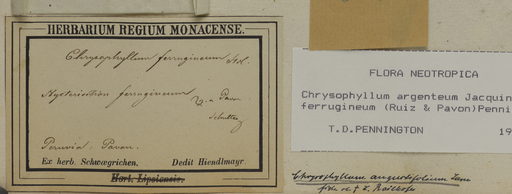 HERBARIUM REGIUM MONACENSE.
Chrysophyllum ferrugineum
Nycterisition ferrugineum R. & Pavon.
Schultes
Peruvia. Pavon.
Ex herb. Schwægrichen. Dedit Hiendlmayr
Hort. Lipsiensis.
FLORA NEOTROPICA
Chrysophyllum argenteum Jacquin
ferrugineum (Ruiz & Pavon)Penni
T.D.PENNINGTON 19
Chrysophyllum angustifolium Lam
fide